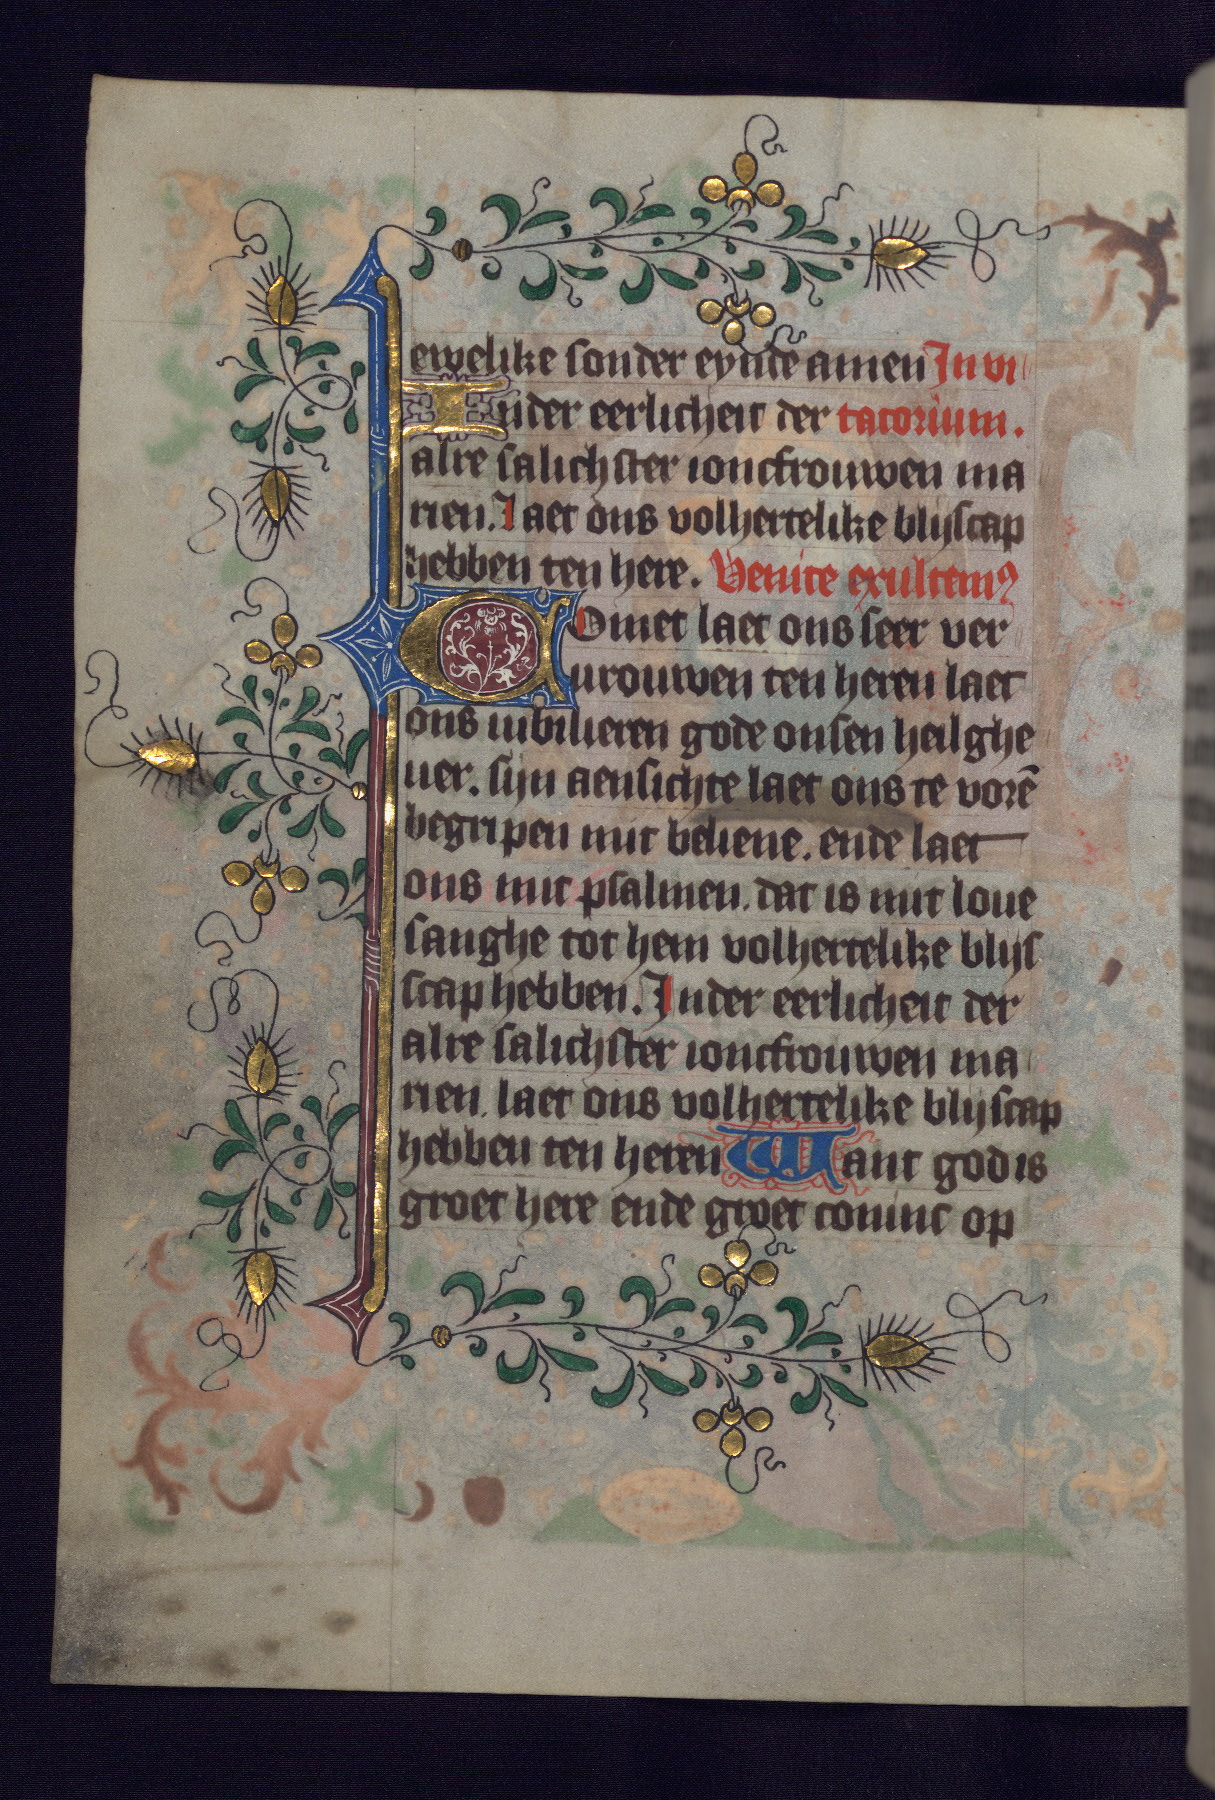 ewelike sonder eynde amen Jn vi
Jnder eerlicheit der tatorium.
alre salichster ioncfrouwen ma
rien. Laet ons volhertelike blijscap
hebben ten here. Venite exultemꝰ
COmet laet ons seer ver
vrouwen ten heren laet
ons iubilieren gode onsen heilghe
uer. sijn aensichte laet ons te vorē
begripen mit beliene. ende laet
ons mit psalmen. dat is mit loue
sanghe tot hem volhertelike blijs
scap hebben. Jnder eerlicheit der
alre salichster ioncfrouwen ma
rien. laet ons volhertelike blijscap
hebben ten heren Want god is
groet here ende groet coninc op